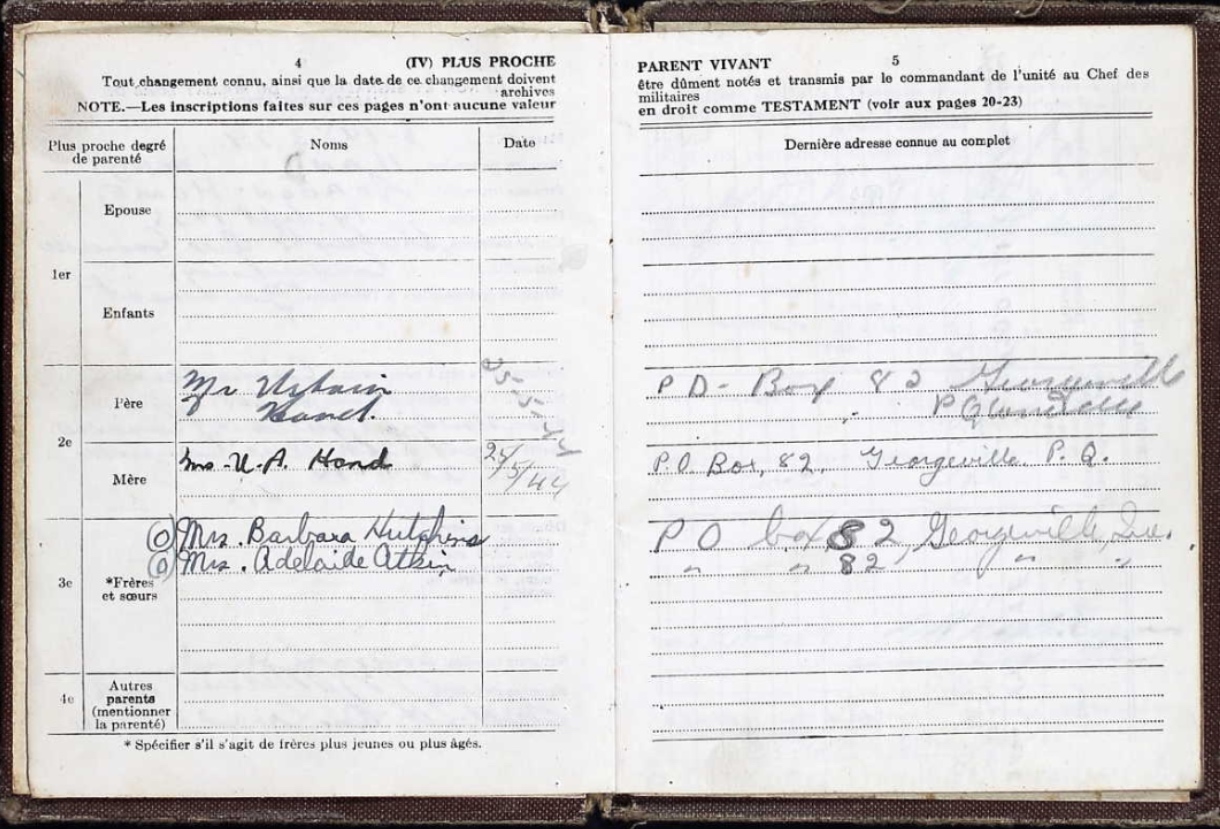 4 (IV) PLUS PROCHE
Tout changement connu, ainsi que la date de ce changement doivent
archives
NOTE.—Les inscriptions faites sur ces pages n'ont aucune valeur
Plus proche degré
de parenté
Noms
Date
Epouse
1er
Enfants
Père
Mr
25-5-44
2e
Mère
Mrs. U. A. Hand
25/5/44
(O) Mrs. Barbara Hutchins
(O) Mrs. Adelaide Atkin
3e
*Frères
et sœurs
4e
Autres
parents
(mentionner
la parenté)
* Spécifier s'il s'agit de frères plus jeunes ou plus âgés.
PARENT VIVANT 5
être dûment notés et transmis par le commandant de l'unité au Chef des
militaires
en droit comme TESTAMENT (voir aux pages 20-23)
Dernière adresse connue au complet
P O - Box 82 Georgeville
P.Q.
P.O. Box, 82, Georgeville. P. Q.
P O box 82, Georgeville, Que.
" " 82 " "